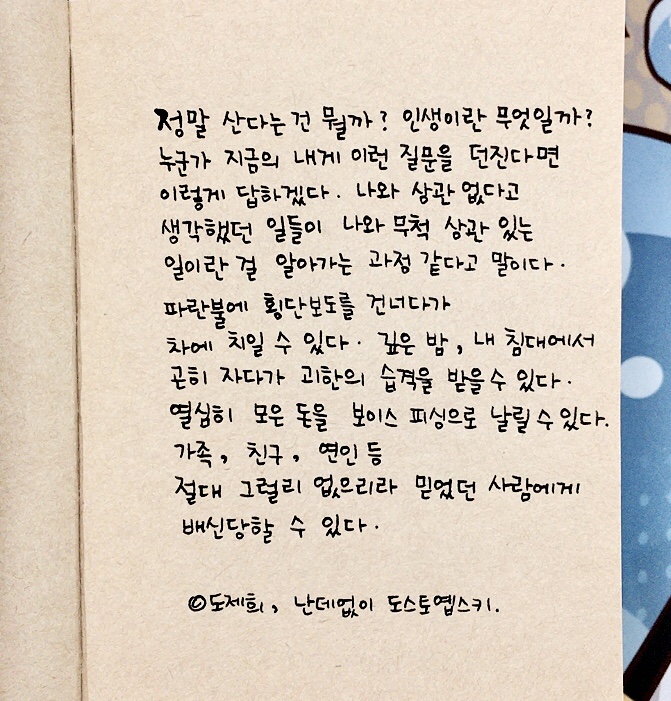 정말 산다는건 뭘까? 인생이란 무엇일까?
누군가 지금의 내게 이런 질문을 던진다면
이렇게 답하겠다. 나와 상관 없다고
생각했던 일들이 나와 무척 상관 있는
일이란 걸 알아가는 과정 같다고 말이다.
파란불에 횡단보도를 건너다가
차에 치일 수 있다. 깊은 밤, 내 침대에서
곤히 자다가 괴한의 습격을 받을 수 있다.
열심히 모은 돈을 보이스 피싱으로 날릴 수 있다.
가족, 친구, 연인 등
절대 그럴리 없으리라 믿었던 사람에게
배신당할 수 있다.
©도제희, 난데없이 도스토옙스키.